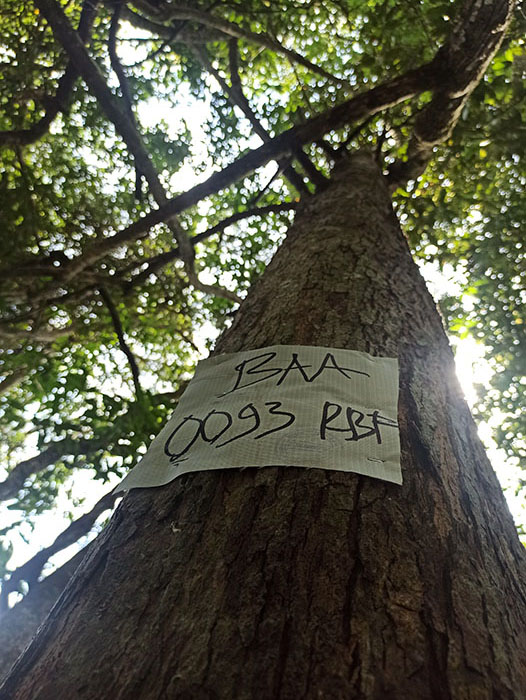 BAA
0093 RBF